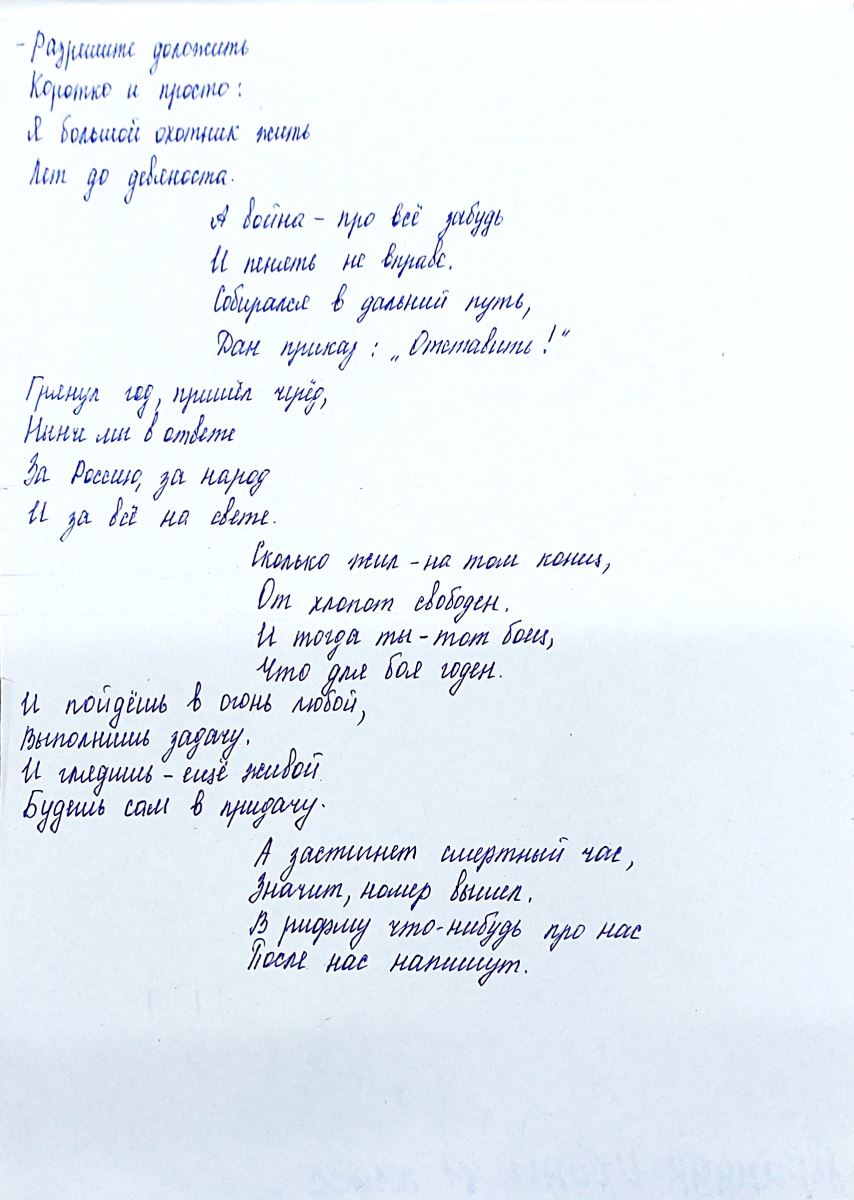 - Разрешите доложить
Коротко и просто:
Я большой охотник жить
Лет до девяноста.
А война - про всё забудь
И пенять не вправе.
Собирался в дальний путь,
Дан приказ: „Отставить!“
Грянул год, пришёл черёд,
Нынче мы в ответе
За Россию, за народ
И за всё на свете.
Сколько жил - на том конец,
От хлопот свободен.
И тогда ты - тот боец,
Что для боя годен.
И пойдёшь в огонь любой,
Выполнишь задачу.
И глядишь - ещё живой
Будешь сам в придачу.
А застигнет смертный час,
Значит, номер вышел.
В рифму что-нибудь про нас
После нас напишут.